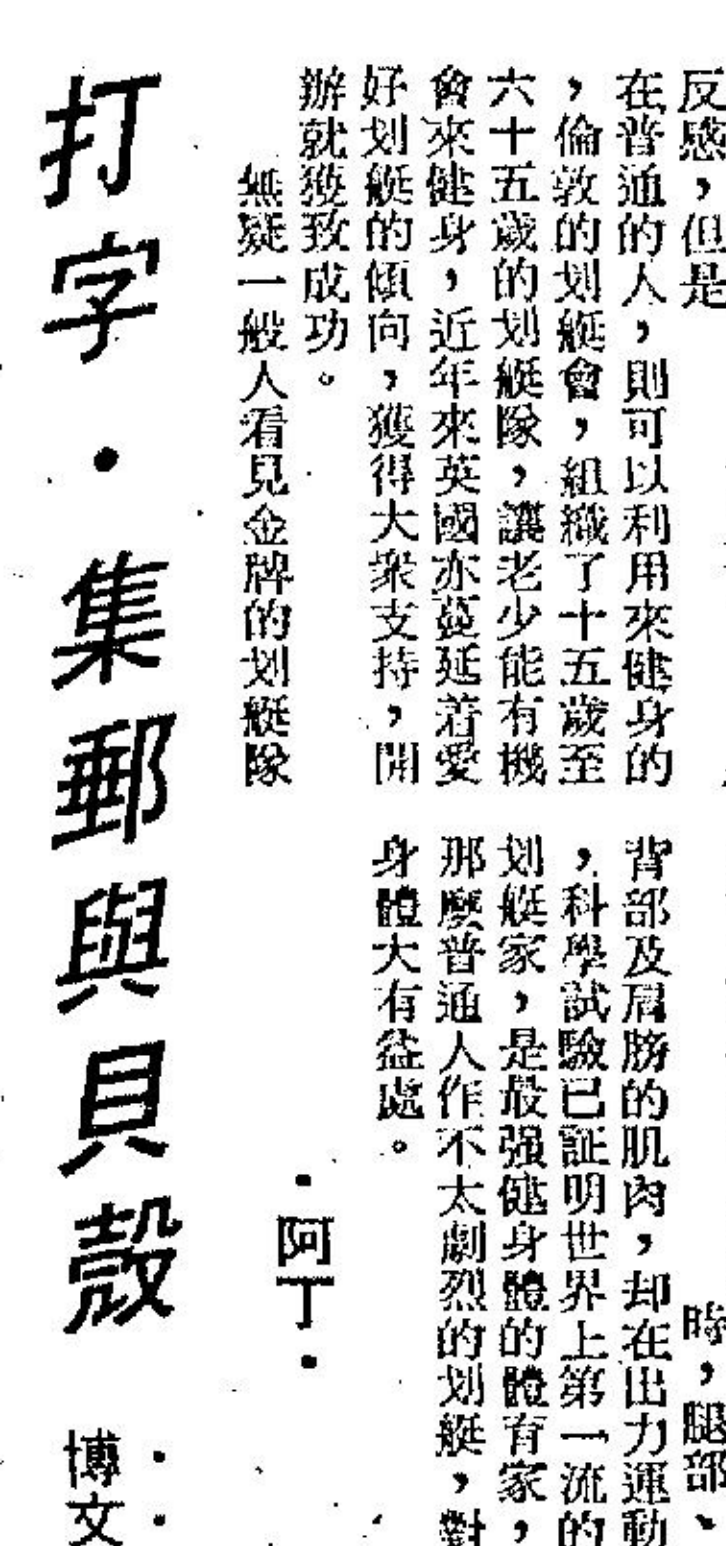 反感，但是
在普通的人，則可以利用來健身的
，倫敦的划艇會，組織了十五歲至
六十五歲的划艇隊，讓老少能有機
會來健身，近年來英國亦蔓延着愛
好划艇的傾向，獲得大衆支持，開
辦就獲致成功。
無疑一般人看見金牌的划艇隊
時，腿部、
背部及肩膀的肌肉，却在出力運動
，科學試驗已証明世界上第一流的
划艇家，是最强健身體的體育家，
那麼普通人作不太劇烈的划艇，對
身體大有益處。
·阿丁·
打字·集郵與貝殼
博文